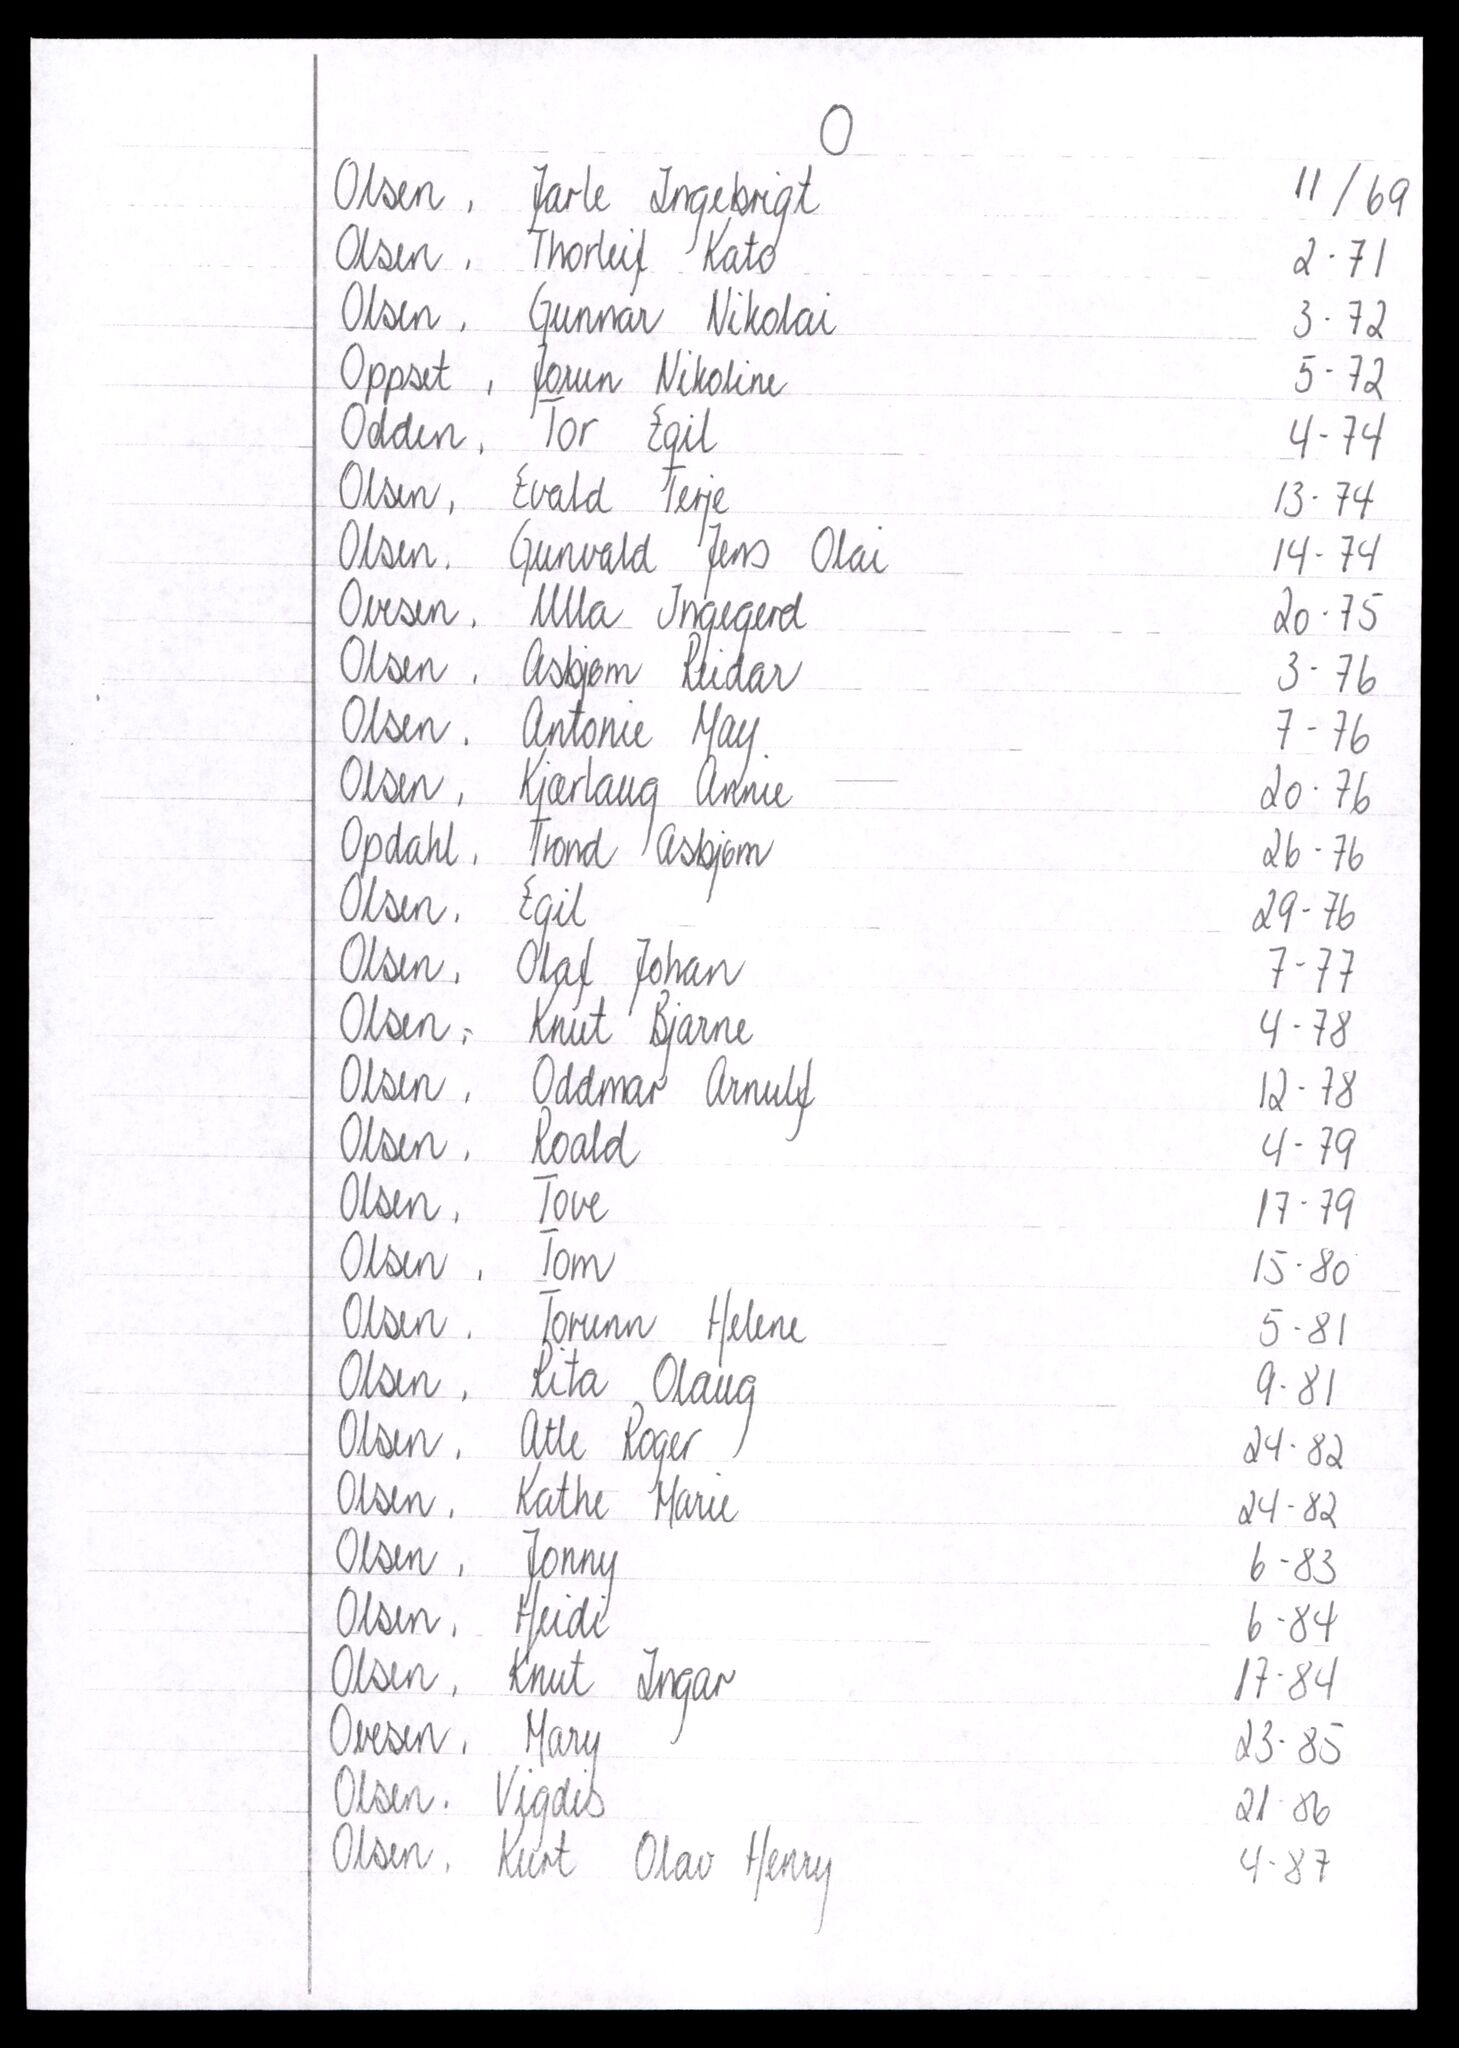 O
Olsen, Jarle Ingebrigt 11/69
Olsen, Thorleif Kato 2-71
Olsen, Gunnar Nikolai 3-72
Oppset, Jorun Nikoline 5-72
Odden, Tor Egil 4-74
Olsen, Evald Terje 13-74
Olsen, Gunvald Jens Olai 14-74
Ovesen, Ulla Ingegerd 20-75
Olsen, Asbjørn Reidar 3-76
Olsen, Antonie May 7-76
Olsen, Kjærlaug Annie 20-76
Opdahl, Trond Asbjørn 26-76
Olsen, Egil 29-76
Olsen, Olaf Johan 7-77
Olsen, Knut Bjarne 4-78
Olsen, Oddmar Arnulf 12-78
Olsen, Roald 4-79
Olsen, Tove 17-79
Olsen, Tom 15-80
Olsen, Torunn Helene 5-81
Olsen, Rita Olaug 9-81
Olsen, Atle Roger 24-82
Olsen, Kathe Marie 24-82
Olsen, Jonny 6-83
Olsen, Heidi 6-84
Olsen, Knut Ingar 17-84
Ovesen, Mary 23-85
Olsen, Vigdis 21-86
Olsen, Kurt Olav Henry 4-87